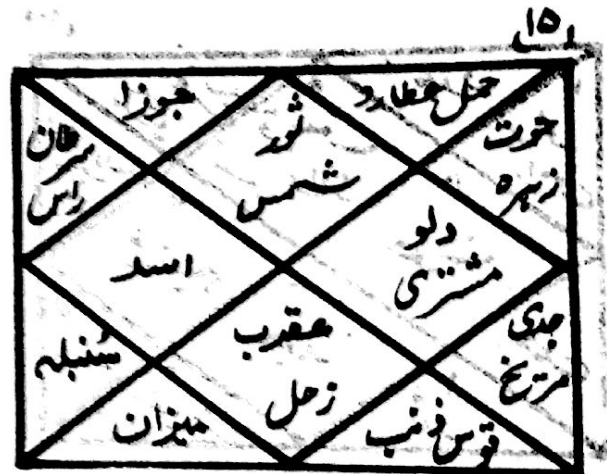 ۱۵
حمل عطارد
ثور
شمس
جوزا
حوت
زہرہ
سرطان
راس
دلو
مشتری
اسد
جدی
مریخ
عقرب
زحل
سُنبلہ
میزان
قوس ذنب